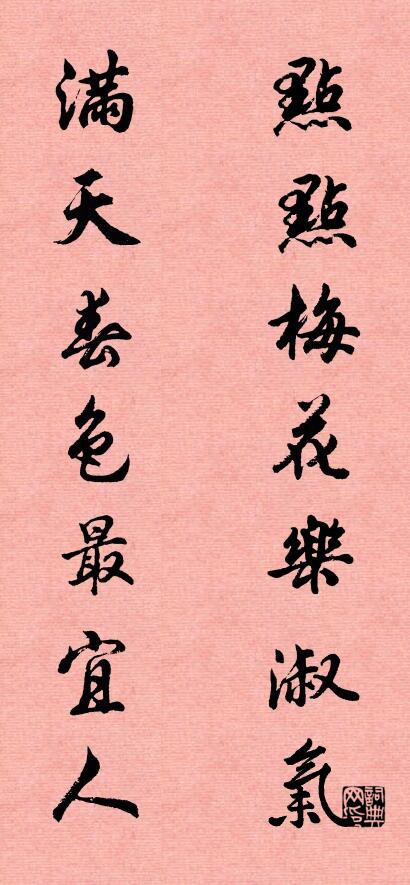 點點梅花樂淑氣
滿天春色最宜人
詞典網